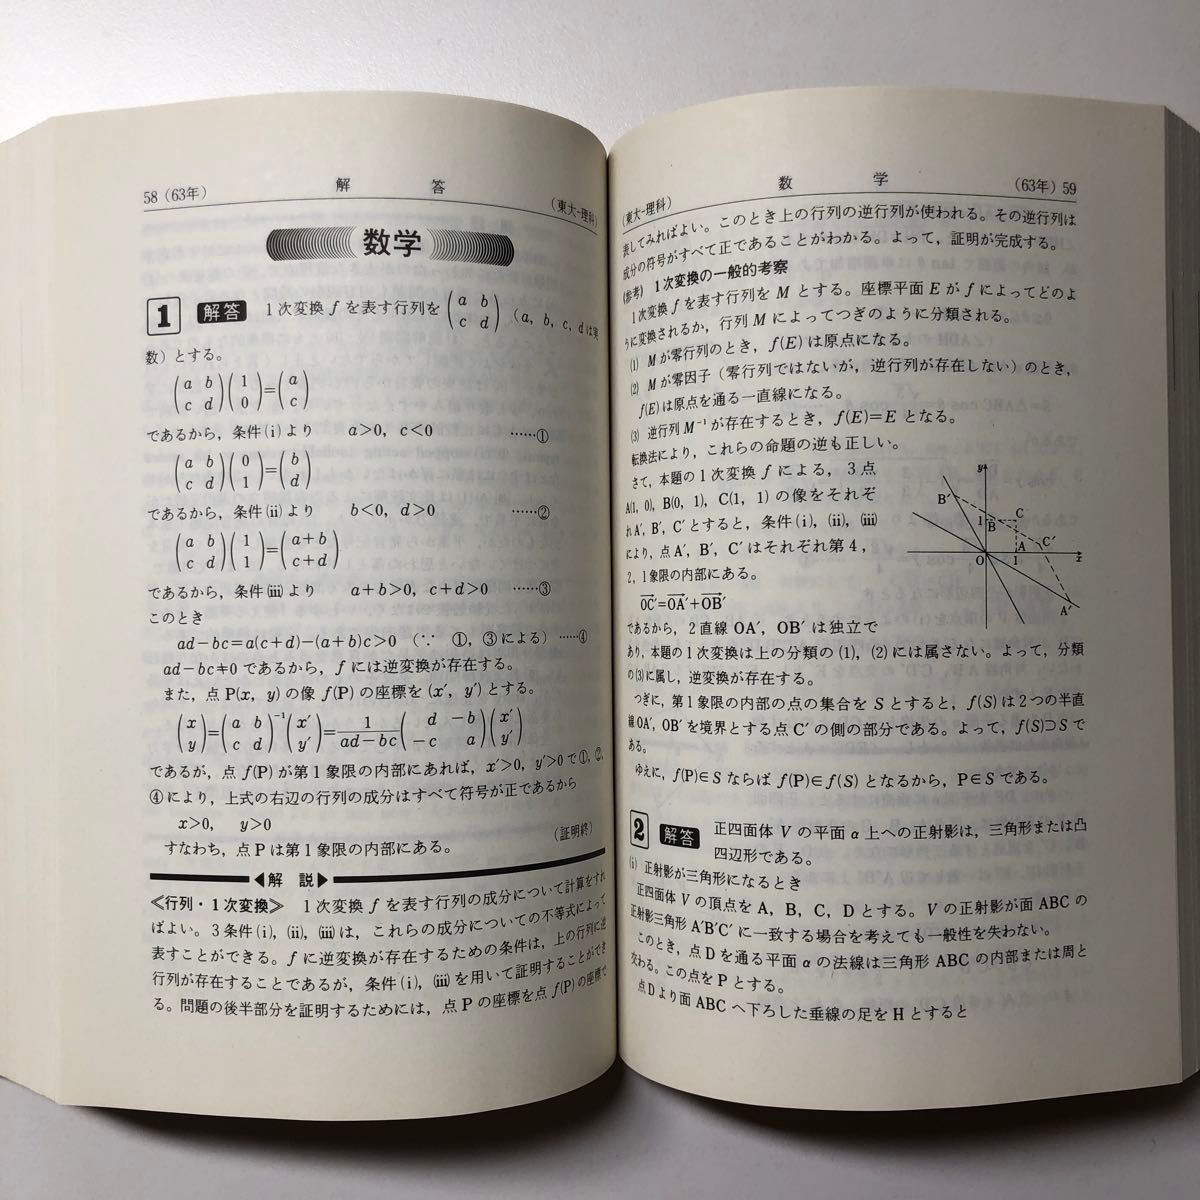 58（63年）　解　答　（東大-理科）
数学
1 解答 1次変換 f を表す行列を (a b / c d)（a, b, c, d は実
数）とする。
(a b / c d)(1 / 0)=(a / c)
であるから，条件(i)より　a>0, c<0　……①
(a b / c d)(0 / 1)=(b / d)
であるから，条件(ii)より　b<0, d>0　……②
(a b / c d)(1 / 1)=(a+b / c+d)
であるから，条件(iii)より　a+b>0, c+d>0　……③
このとき
ad−bc=a(c+d)−(a+b)c>0　(∵　①, ③による)　……④
ad−bc≠0 であるから，f には逆変換が存在する。
また，点 P(x, y) の像 f(P) の座標を (x′, y′) とする。
(x / y)=(a b / c d)⁻¹(x′ / y′)=1/(ad−bc) (d −b / −c a)(x′ / y′)
であるが，点 f(P) が第1象限の内部にあれば，x′>0, y′>0 で①，②，
④により，上式の右辺の行列の成分はすべて符号が正であるから
x>0,　y>0
すなわち，点Pは第1象限の内部にある。　（証明終）
◀解　説▶
≪行列・1次変換≫　1次変換 f を表す行列の成分について計算をすれ
ばよい。3条件(i), (ii), (iii)は，これらの成分についての不等式によって
表すことができる。f に逆変換が存在するための条件は，上の行列に逆
行列が存在することであるが，条件(i), (iii)を用いて証明することができ
る。問題の後半部分を証明するためには，点 P の座標を点 f(P) の座標で
（東大-理科）　数　学　（63年）59
表してみればよい。このとき上の行列の逆行列が使われる。その逆行列は
成分の符号がすべて正であることがわかる。よって，証明が完成する。
(参考)　1次変換の一般的考察
1次変換 f を表す行列を M とする。座標平面 E が f によってどのよ
うに変換されるか，行列 M によってつぎのように分類される。
(1)　M が零行列のとき，f(E) は原点になる。
(2)　M が零因子（零行列ではないが，逆行列が存在しない）のとき，
f(E) は原点を通る一直線になる。
(3)　逆行列 M⁻¹ が存在するとき，f(E)=E となる。
転換法により，これらの命題の逆も正しい。
さて，本題の1次変換 f による，3点
A(1, 0), B(0, 1), C(1, 1) の像をそれぞ
れA′, B′, C′ とすると，条件(i), (ii), (iii)
により，点A′, B′, C′ はそれぞれ第4，
2，1象限の内部にある。
OC′→=OA′→+OB′→
であるから，2直線 OA′，OB′ は独立で
あり，本題の1次変換は上の分類の (1), (2) には属さない。よって，分類
の(3)に属し，逆変換が存在する。
つぎに，第1象限の内部の点の集合を S とすると，f(S) は2つの半直
線OA′，OB′を境界とする点C′の側の部分である。よって，f(S)⊃S で
ある。
ゆえに，f(P)∈S ならば f(P)∈f(S) となるから，P∈S である。
y
B′
1
B
C
C′
A
O
1
x
A′
2 解答 正四面体 V の平面 α 上への正射影は，三角形または凸
四辺形である。
(i)　正射影が三角形になるとき
正四面体 V の頂点を A, B, C, D とする。V の正射影が面 ABC の
正射影三角形 A′B′C′ に一致する場合を考えても一般性を失わない。
このとき，点Dを通る平面 α の法線は三角形 ABC の内部または周と
交わる。この点をPとする。
点Dより面 ABC へ下ろした垂線の足をHとすると